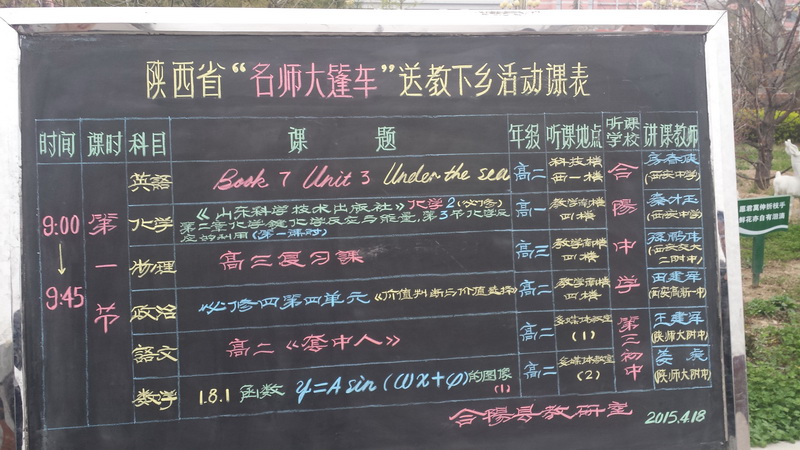 陕西省“名师大篷车”送教下乡活动课表
时间 课时 科目 课题 年级 听课地点 听课学校 讲课教师
9:00 ↓ 9:45
第一节
英語 Book 7 Unit 3 Under the sea 高二 科技楼西一楼 (西安中学)
化学 《山东科学技术出版社》化学2(必修)
第二章化学键化学反应与能量,第3节化学反
应的利用(第一课时) 高一 教学南楼四楼 秦才玉 (西安中学)
物理 高三复习課 高三 教学南楼四楼 (西安交大二附中)
政治 必修四第四单元《价值判断与价值选择》 高二 教学南楼四楼 田建军 (西安高新一中)
語文 高二《套中人》 高二 多媒体教室(1) 王建军 (陕师大附中)
数学 1.8.1 函数 y=Asin(ωx+φ)的图像(1) 高二 多媒体教室(2) (陕师大附中)
合陽中学
第三初中
合陽县教研室 2015.4.18
愿君莫伸折枝手
鲜花亦自有泪滴